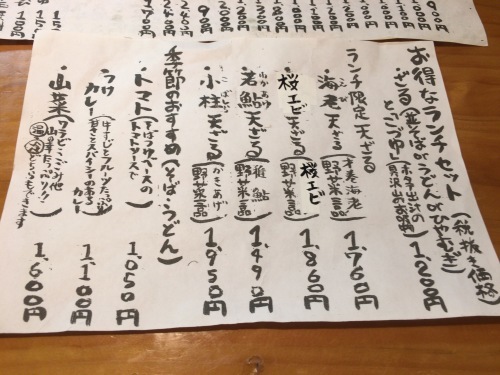 お得なランチセット(税抜き価格)
・ざる(並そばorうどんorひやむぎ)
1,200円
ランチ限定天ざる
・海老天ざる
野菜三品
1,760円
・桜エビ天ざる
桜エビ
野菜三品
1,860円
・若鮎天ざる
わかあゆ
稚鮎
野菜三品
1,490円
・小柱天ざる
こばしら
かきあげ
野菜二品
1,950円
季節のおすすめ(そば・うどん)
・トマト
そばつゆベースの
トマトソースで
1,050円
・つけカレー
牛すじとフルーツたっぷり
甘さとスパイシーのある
カレー
1,100円
・山菜
ワラビ・こごみ他
山の幸たっぷり!!
温冷どちらもできます
1,600円